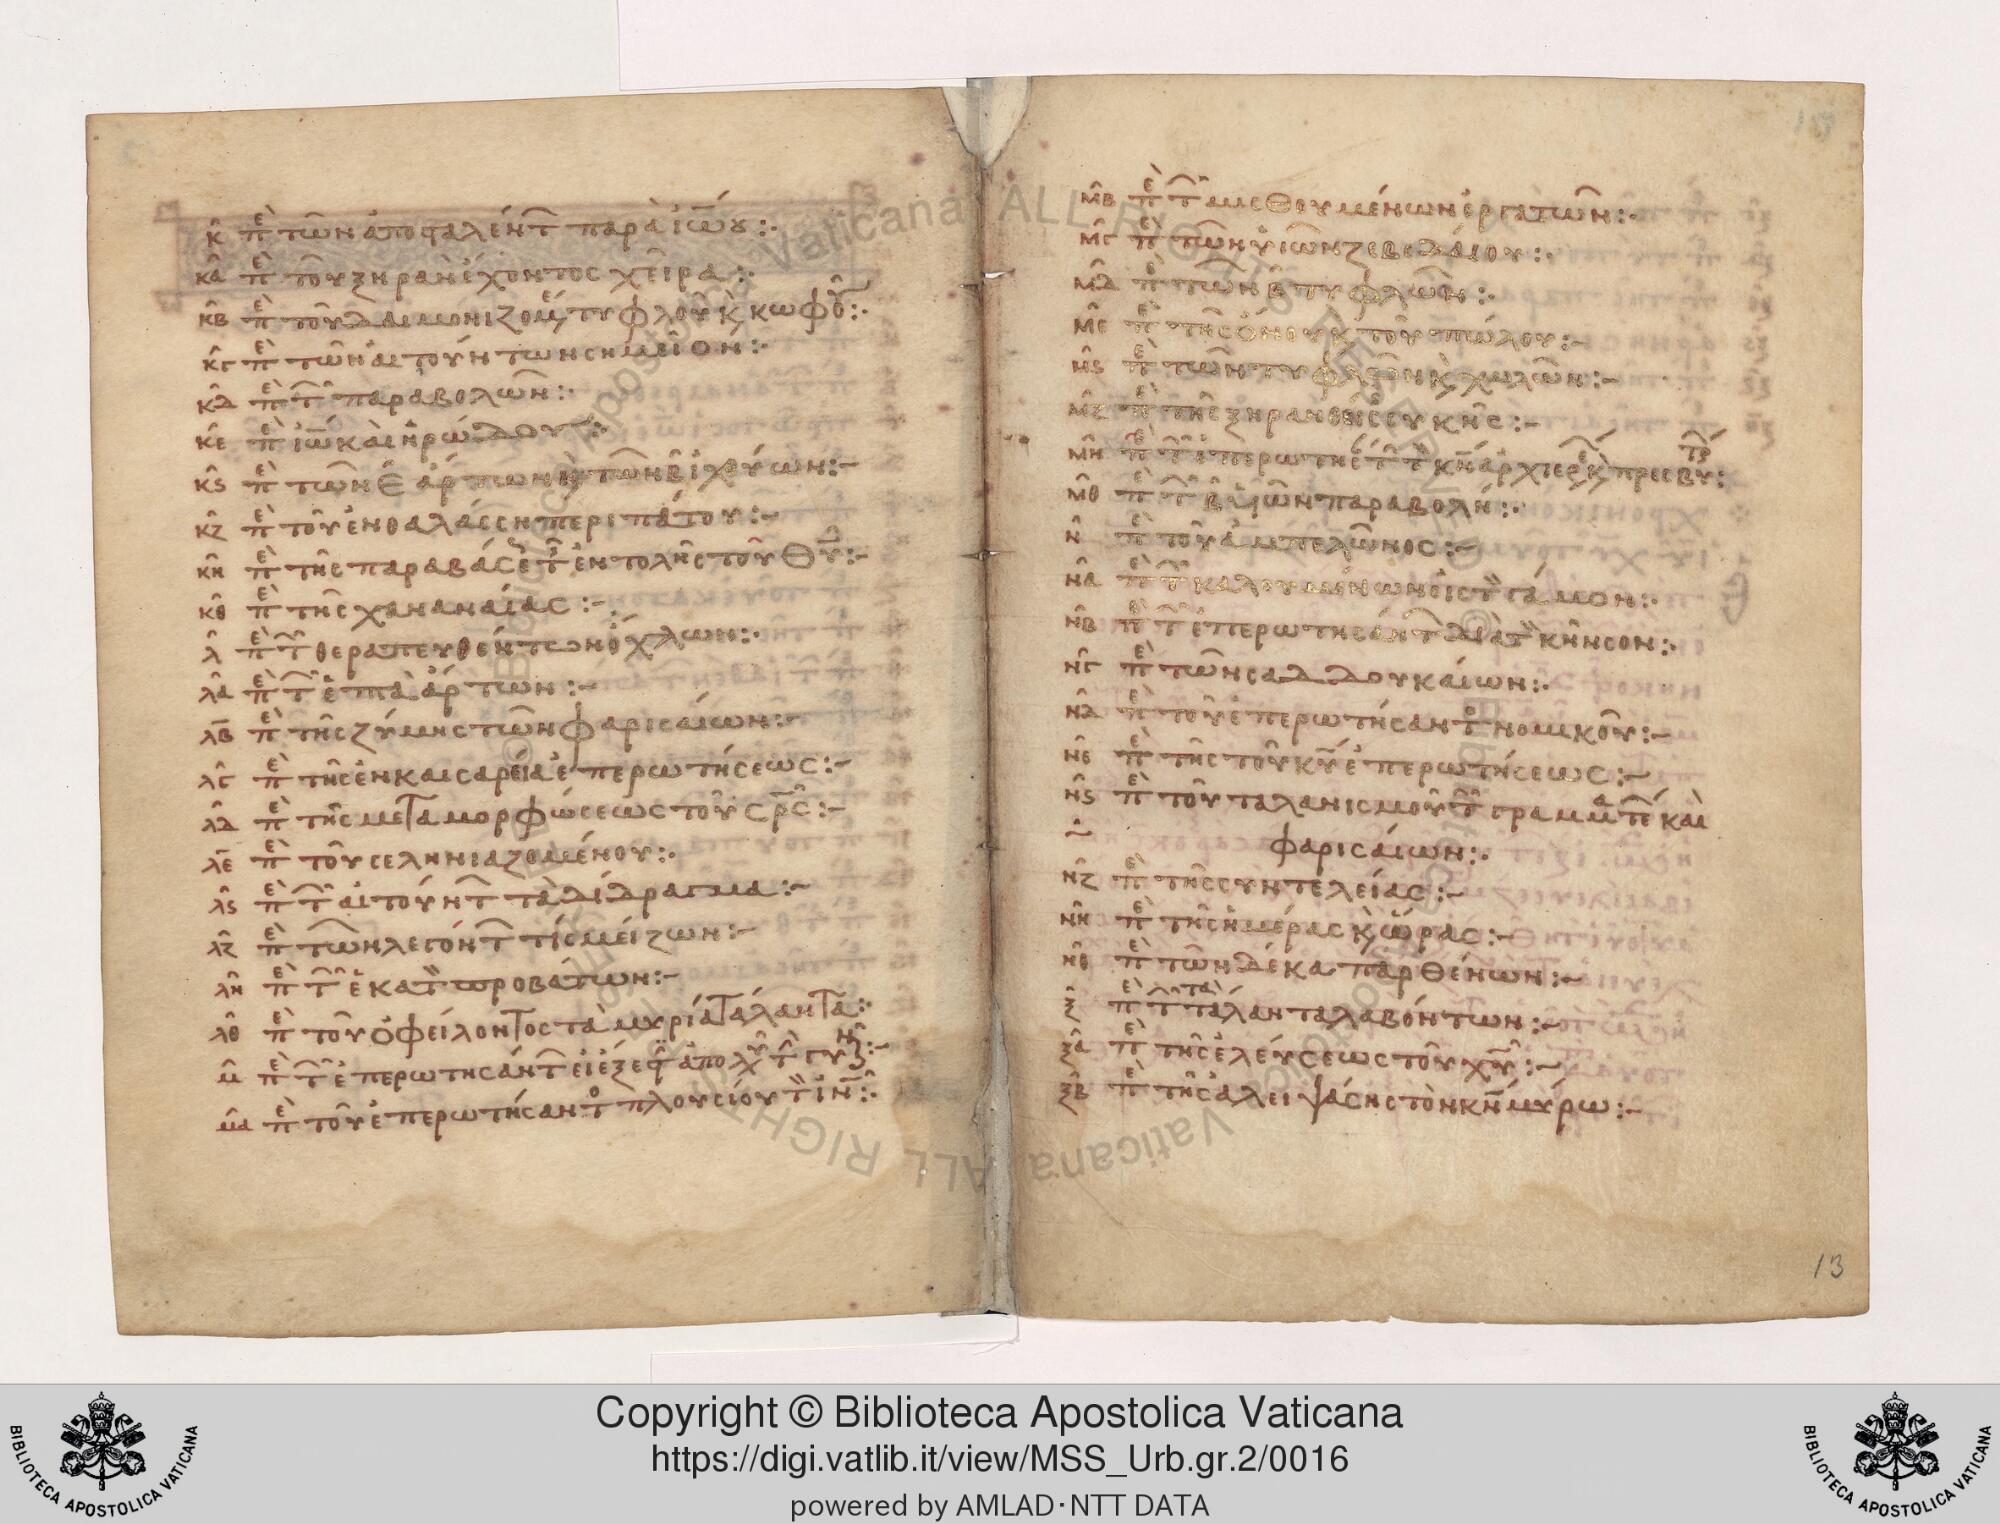 κ πε τῶν ἀποσταλέντ παρὰ ἰω̅ου:.
κα πε τοῦ ξηρὰν ἔχοντος χεῖρα:.
κβ πε τοῦ δαιμονιζομ τυφλοῦ κ κωφοῦ:.
κγ πε τῶν αἰτούντων σημεῖον:.
κδ πε τ παραβολῶν:.
κε πε ἰω̅ καὶ ἡρώδου:.
κς πε τῶν ε ἄρτων κ τῶν β ἰχθύων:–
κζ πε τοῦ ἐν θαλάσση περιπάτου:–
κη πε τῆς παραβάσε τ ἐντολῆς τοῦ θυ̅:–
κθ πε τῆς χαναναίας:–
λ πε τ θεραπευθέντων ὄχλων:.
λα πε τ ἑπτὰ ἄρτων:–
λβ πε τῆς ζύμης τῶν φαρισαίων:–
λγ πε τῆς ἐν καισαρεία ἐπερωτήσεως:–
λδ πε τῆς μεταμορφώσεως τοῦ σρ̅ς:–
λε πε τοῦ σεληνιαζομένου:.
λς πε τ αἰτούντ τὰ δίδραγμα:–
λζ πε τῶν λεγόντ τίς μείζων:–
λη πε τ ἑκατ προβάτων:–
λθ πε τοῦ ὀφείλοντος τὰ μυρία τάλαντα:.
μ πε τ ἐπερωτησάντ εἰ ἔξεστ ἀπολῦ τ γυν:–
μα πε τοῦ ἐπερωτήσαντο πλουσίου τ ιν̅:.
μβ πε τ μισθουμένων ἐργατῶν:.
μγ πε τῶν υἱῶν ζεβεδαίου:.
μδ πε τῶν β τυφλῶν:.
με πε τῆς ὄνου κ τοῦ πώλου:–
μς πε τῶν τυφλῶν κ χωλῶν:–
μζ πε τῆς ξηρανθείσ συκῆς:–
μη πε τ ἐπερωτησ τ τ κν̅ ἀρχιερ κ πρεσβυτρ:
μθ πε τ β υἱῶν παραβολή:.
ν πε τοῦ ἀμπελῶνος:–
να πε τ καλουμένων εἰς τ γάμον:.
νβ πε τ ἐπερωτησάντ διὰ τ κῆνσον:.
νγ πε τῶν σαδδουκαίων:.
νδ πε τοῦ ἐπερωτήσαντο νομικοῦ:–
νε πε τῆς τοῦ κυ̅ ἐπερωτήσεως:–
νς πε τοῦ ταλανισμοῦ τ γραμματ καὶ
φαρισαίων:.
νζ πε τῆς συντελείας:–
νη πε τῆς ἡμέρας κ ὥρας:–
νθ πε τῶν δέκα παρθένων:–
ξ πε τ τὰ τάλαντα λαβόντων:–
ξα πε τῆς ἐλεύσεως τοῦ χυ̅:–
ξβ πε τῆς ἀλειψάσης τὸν κν̅ μύρω:–
13
Copyright © Biblioteca Apostolica Vaticana
https://digi.vatlib.it/view/MSS_Urb.gr.2/0016
powered by AMLAD·NTT DATA
BIBLIOTECA APOSTOLICA VATICANA
BIBLIOTECA APOSTOLICA VATICANA